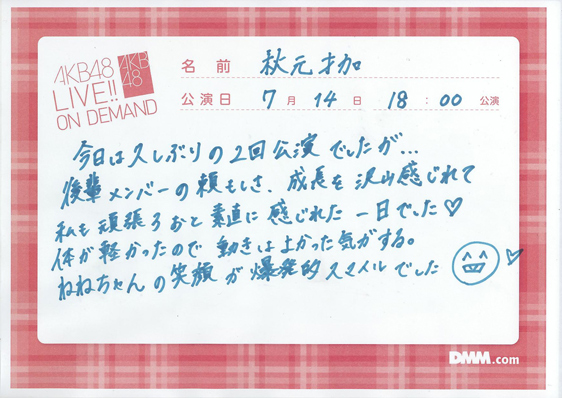 AKB48
LIVE!!
ON DEMAND
AKB
48
名前 秋元才加
公演日 7月14日 18:00公演
今日は久しぶりの2回公演でしたが…
後輩メンバーの頼もしさ、成長を沢山感じれて
私も頑張ろおと素直に感じれた一日でした♡
体が軽かったので動きはよかった気がする。
ねねちゃんの笑顔が爆発的スマイルでした
DMM.com